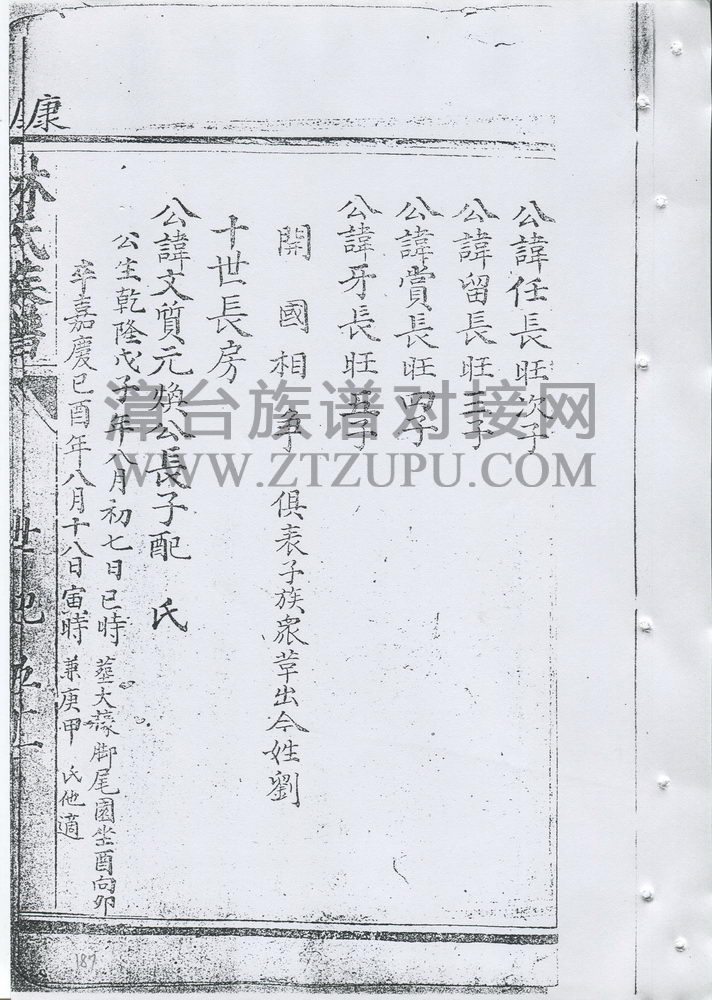 公諱任長旺次子
公諱留長旺三子
公諱賞長旺四子
公諱牙長旺五子
開國相爭俱表子族衆草出今姓劉
十世長房
公諱文質元煥公長子配 氏
公生乾隆戊子年八月初七日巳時
卒嘉慶己酉年八月十八日寅時
塟大蘓脚尾園坐酉向卯
兼庚甲 氏他適
康
林氏族譜
世
漳台族谱对接网
WWW.ZTZUPU.COM
187